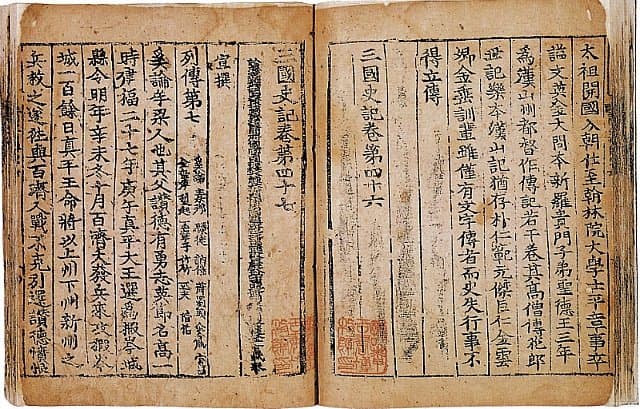 太祖開國入朝仕至翰林院大學士平章事卒
謚文英金大問本新羅貴門子弟聖德王三年
為漢山州都督作傳記若干卷其高僧傳花郎
世記樂本漢山記猶存朴仁範元傑巨仁金雲
卿金垂訓輩雖僅有文字傳者而史失行事不
得立傳
三國史記卷第四十六
三國史記卷第四十七
宣撰
列傳第七
奚論牟梁人也其父讚德有勇志英節名高一
時建福二十七年庚午真平大王選為椵岑城
縣令明年辛未冬十月百濟大發兵來攻椵岑
城一百餘日真平王命將以上州下州新州之
兵救之遂往與百濟人戰不克引還讚德憤恨